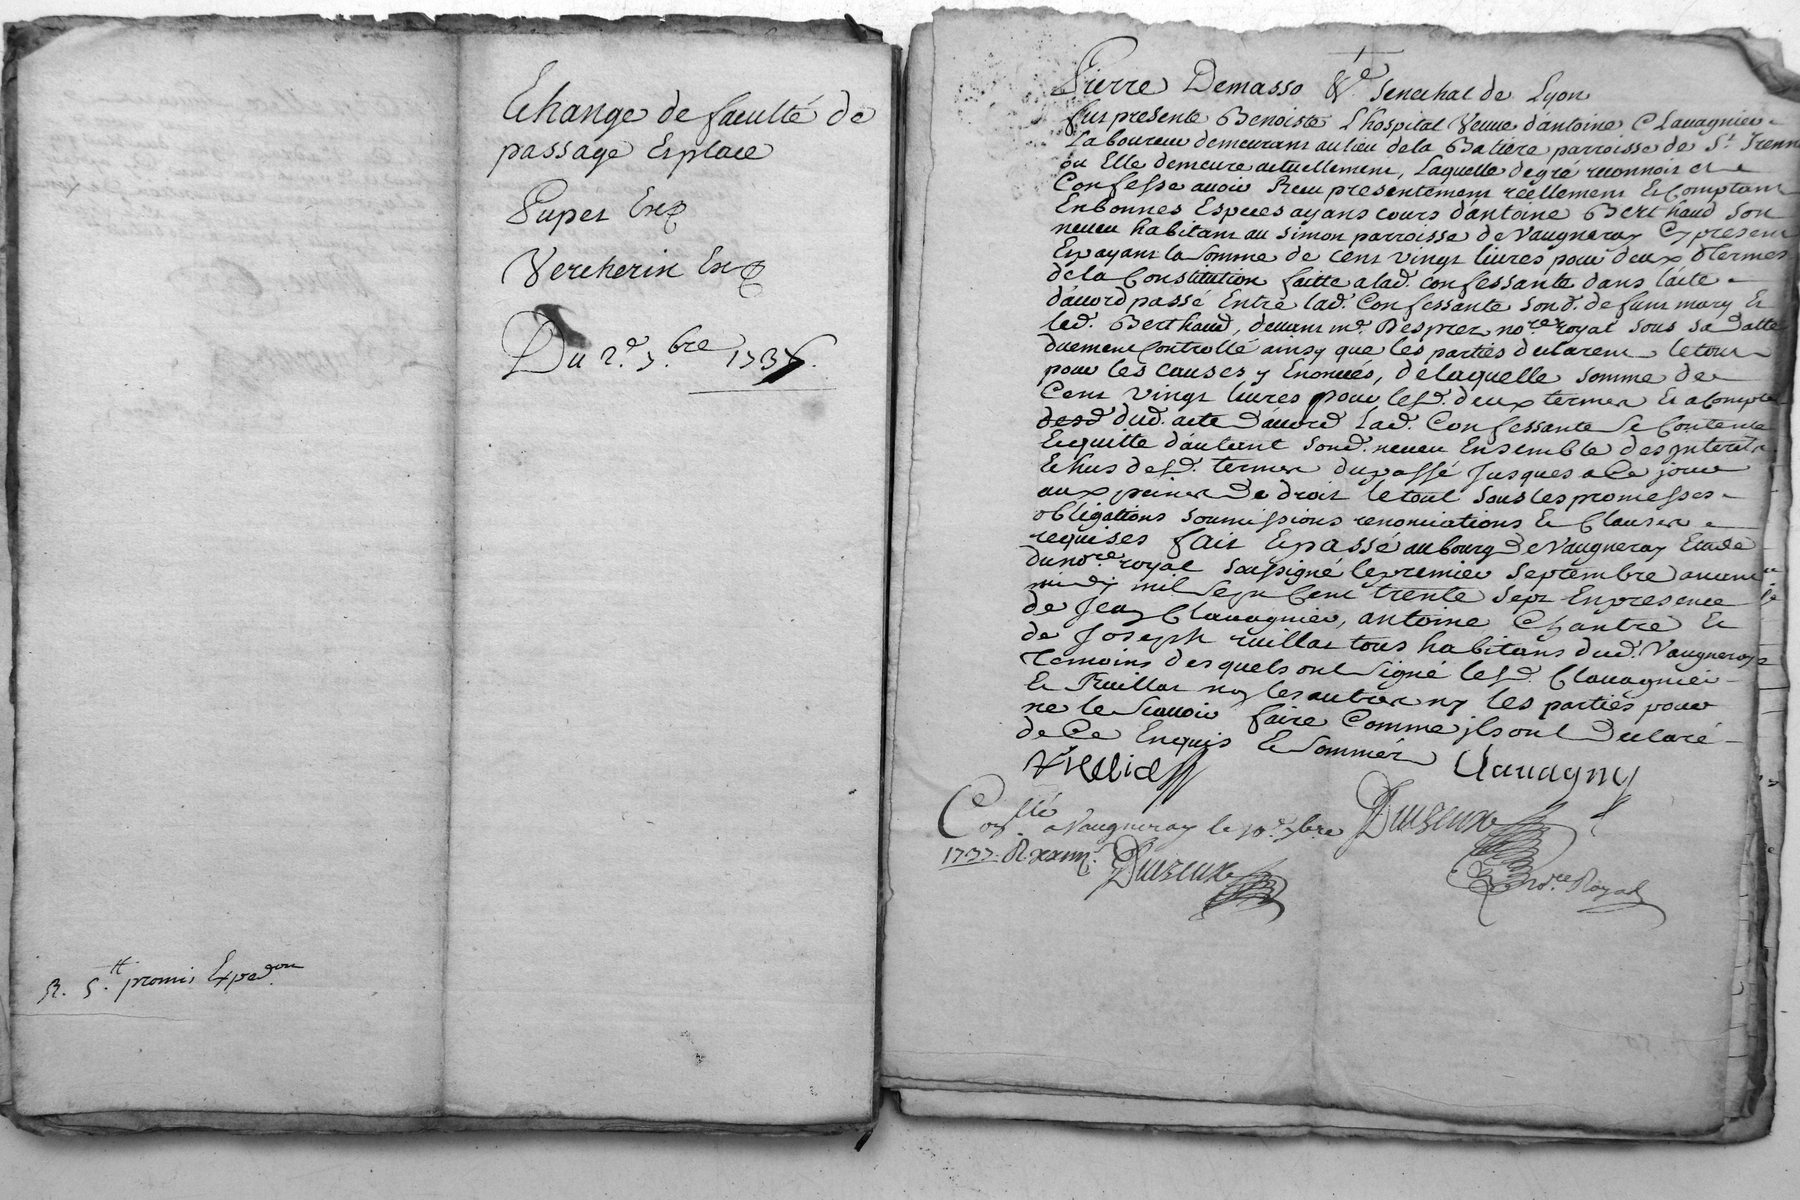 Echange de faculté de
passage Esplace
Pupet Exp
Vercherin Exp
Du 2d. 7bre 1737.
R. 5tt promis Exped.on
Pierre Demasso Sénéchal de Lyon
fut presente Benoiste Lhospital Veuve d'antoine Clauagnier
Laboureur demeurant au lieu dela Batiere parroisse de St. Irennée
ou Elle demeure actuellement, Laquelle degré reconnoit et
Confesse auoir Receu presentement réellement Et Comptant
Enbonnes Especes ayans cours d'antoine Berthaud Son
neueu habitant au Simon parroisse de Vaugneray Cy present
Et payant la Somme de cent vingt liures pour deux termes
dela Constitution faitte a lad. confessante dans l'acte
d'acord passé Entre lad. Confessante Sond. defunt mary Et
led. Berthaud, deuant me. Desprez nore. royal sous sa datte
duement Controllé ainsy que les parties declarent le tout
pour les causes y Enoncées, de laquelle somme de
Cent vingt liures pour lesd. deux termes Et a Compte
dud. acte D'acord Lad. Confessante Se Contente
Et quitte d'autant Sond. neueu Ensemble des jnterets
Echus desd. termes du passé Jusques a Ce jour
aux peines de droit le tout sous les promesses
obligations soumissions renonciations Et Clauses
requises fait Et passé au bourg de Vaugneray Etude
du nore. royal soussigné le premier Septembre auant
midy mil Sept Cent trente Sept En presence
de Jean Clauagnier, antoine Chantre Et
de Joseph ruillat tous habitans dud. Vaugneray
temoins desquels ont Signé lesd. Clauagnier
Et Ruillat ny les autres ny les parties pour
ne le Scauoir faire Comme jls ont Declaré
de Ce Enquis Et Sommés
Clauagny
Conllé a Vaugneray le 10e. 7bre
1737. R.
nore. Royal